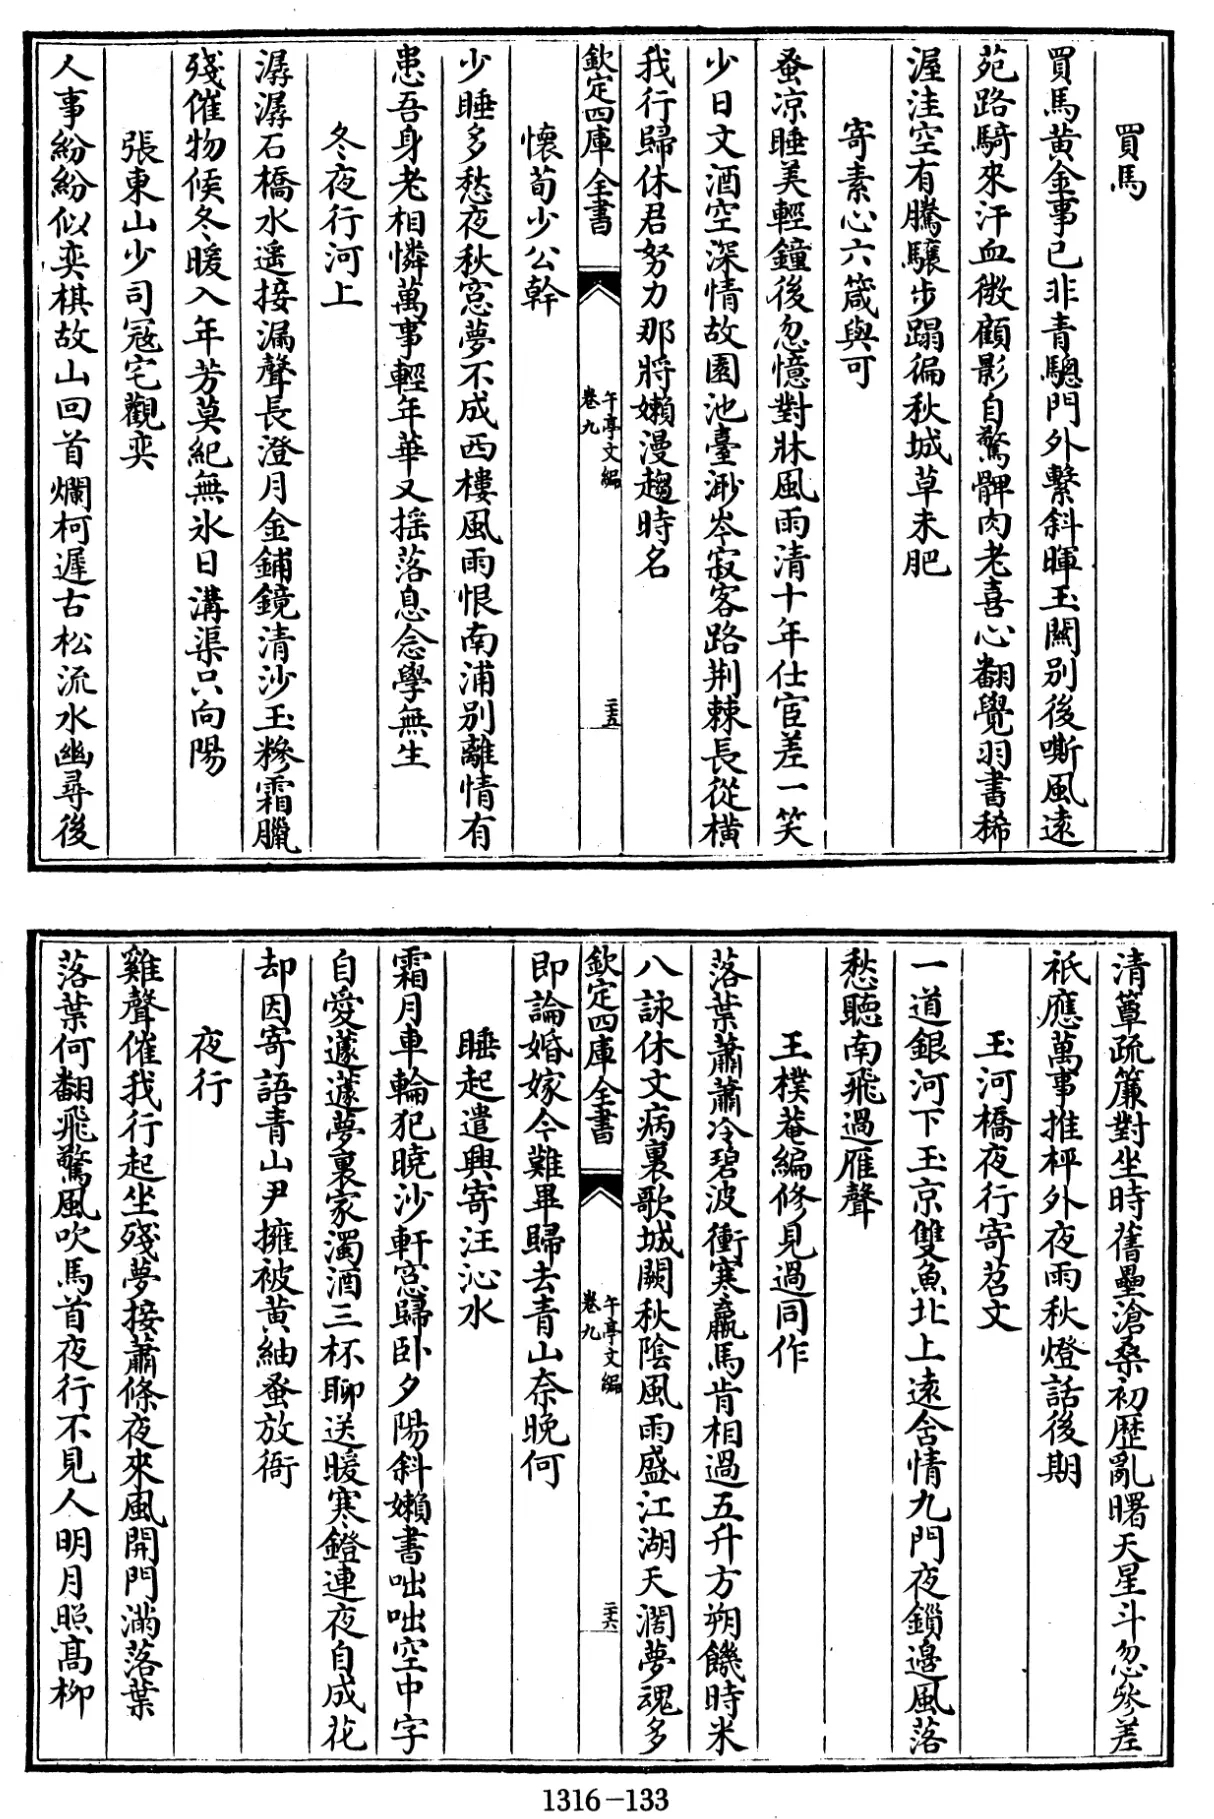 買馬
買馬黄金事已非青驄門外繫斜暉玉闗别後嘶風逺
苑路騎來汗血微顧影自驚髀肉老喜心翻覺羽書稀
渥洼空有騰驤步蹋徧秋城草未肥
寄素心六箴與可
蚤凉睡美輕鐘後忽憶對牀風雨清十年仕宦差一笑
少日文酒空深情故園池臺渺岑寂客路荆棘長從横
我行歸休君努力那將嬾漫趨時名
欽定四庫全書
午亭文編
卷九
二五
懷荀少公幹
少睡多愁夜秋窓夢不成西樓風雨恨南浦别離情有
患吾身老相憐萬事輕年華又揺落息念學無生
冬夜行河上
潺潺石橋水遥接漏聲長澄月金鋪鏡清沙玉糝霜臘
殘催物候冬暖入年芳莫紀無氷日溝渠只向陽
張東山少司冦宅觀奕
人事紛紛似奕棋故山回首爛柯遲古松流水幽尋後
清簟疏簾對坐時舊壘滄桑初歴亂曙天星斗忽參差
祇應萬事推枰外夜雨秋燈話後期
玉河橋夜行寄苕文
一道銀河下玉京雙魚北上逺含情九門夜鎻邉風落
愁聽南飛過雁聲
王樸菴編修見過同作
落葉蕭蕭冷碧波衝寒羸馬肯相過五升方朔饑時米
八詠休文病裏歌城闕秋陰風雨盛江湖天濶夢魂多
欽定四庫全書
午亭文編
卷九
二六
即論婚嫁今難畢歸去青山奈晩何
睡起遣興寄汪沁水
霜月車輪犯曉沙軒窓歸卧夕陽斜嬾書咄咄空中字
自愛蘧蘧夢裏家濁酒三杯聊送暖寒鐙連夜自成花
却因寄語青山尹擁被黄紬蚤放衙
夜行
雞聲催我行起坐殘夢接蕭條夜來風開門滿落葉
落葉何翻飛驚風吹馬首夜行不見人明月照髙柳
1316-133